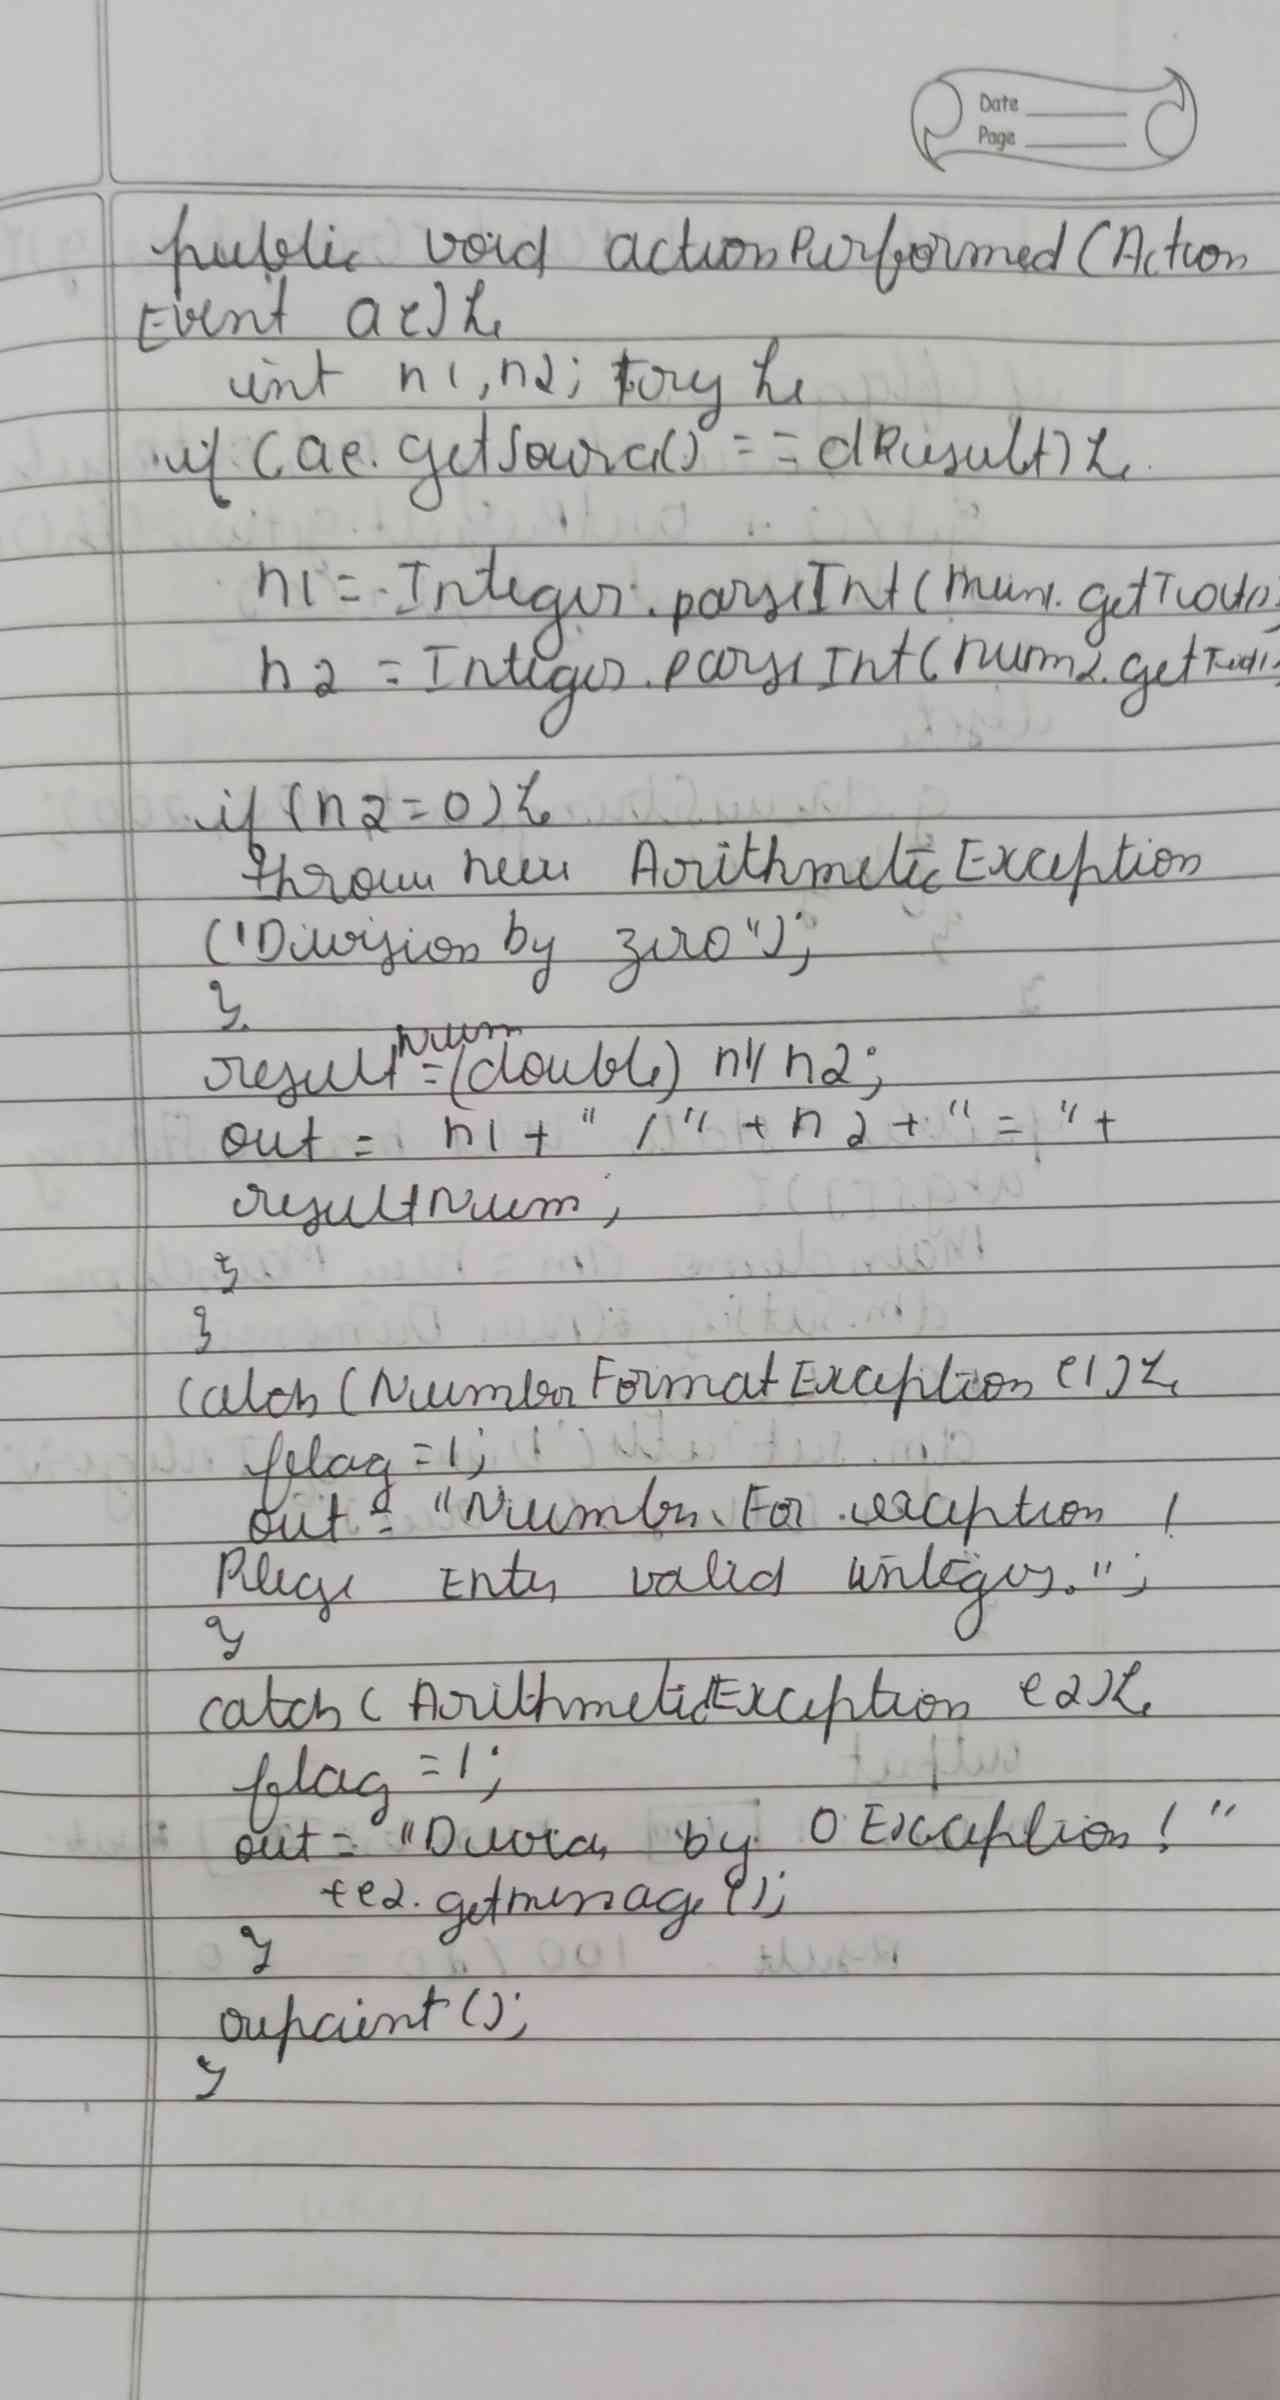 Date
Page
public void actionPerformed(Action
Event ae){
int n1,n2; try {
if (ae.getSource() == dResult){
n1 = Integer.parseInt(num1.getText()
n2 = Integer.parseInt(num2.getText()
if (n2=0){
throw new ArithmeticException
("Division by zero");
}
resultNum=(double) n1/n2;
out = n1+" /"+n2+" = "+
resultNum;
}
}
catch (NumberFormatException e1){
flag =1;
out = "Number For exception !
Please Enter valid integers.";
}
catch ( ArithmeticException e2){
flag =1;
out= "Divide by 0 Exception! "
+e2.getmessage();
}
repaint();
}